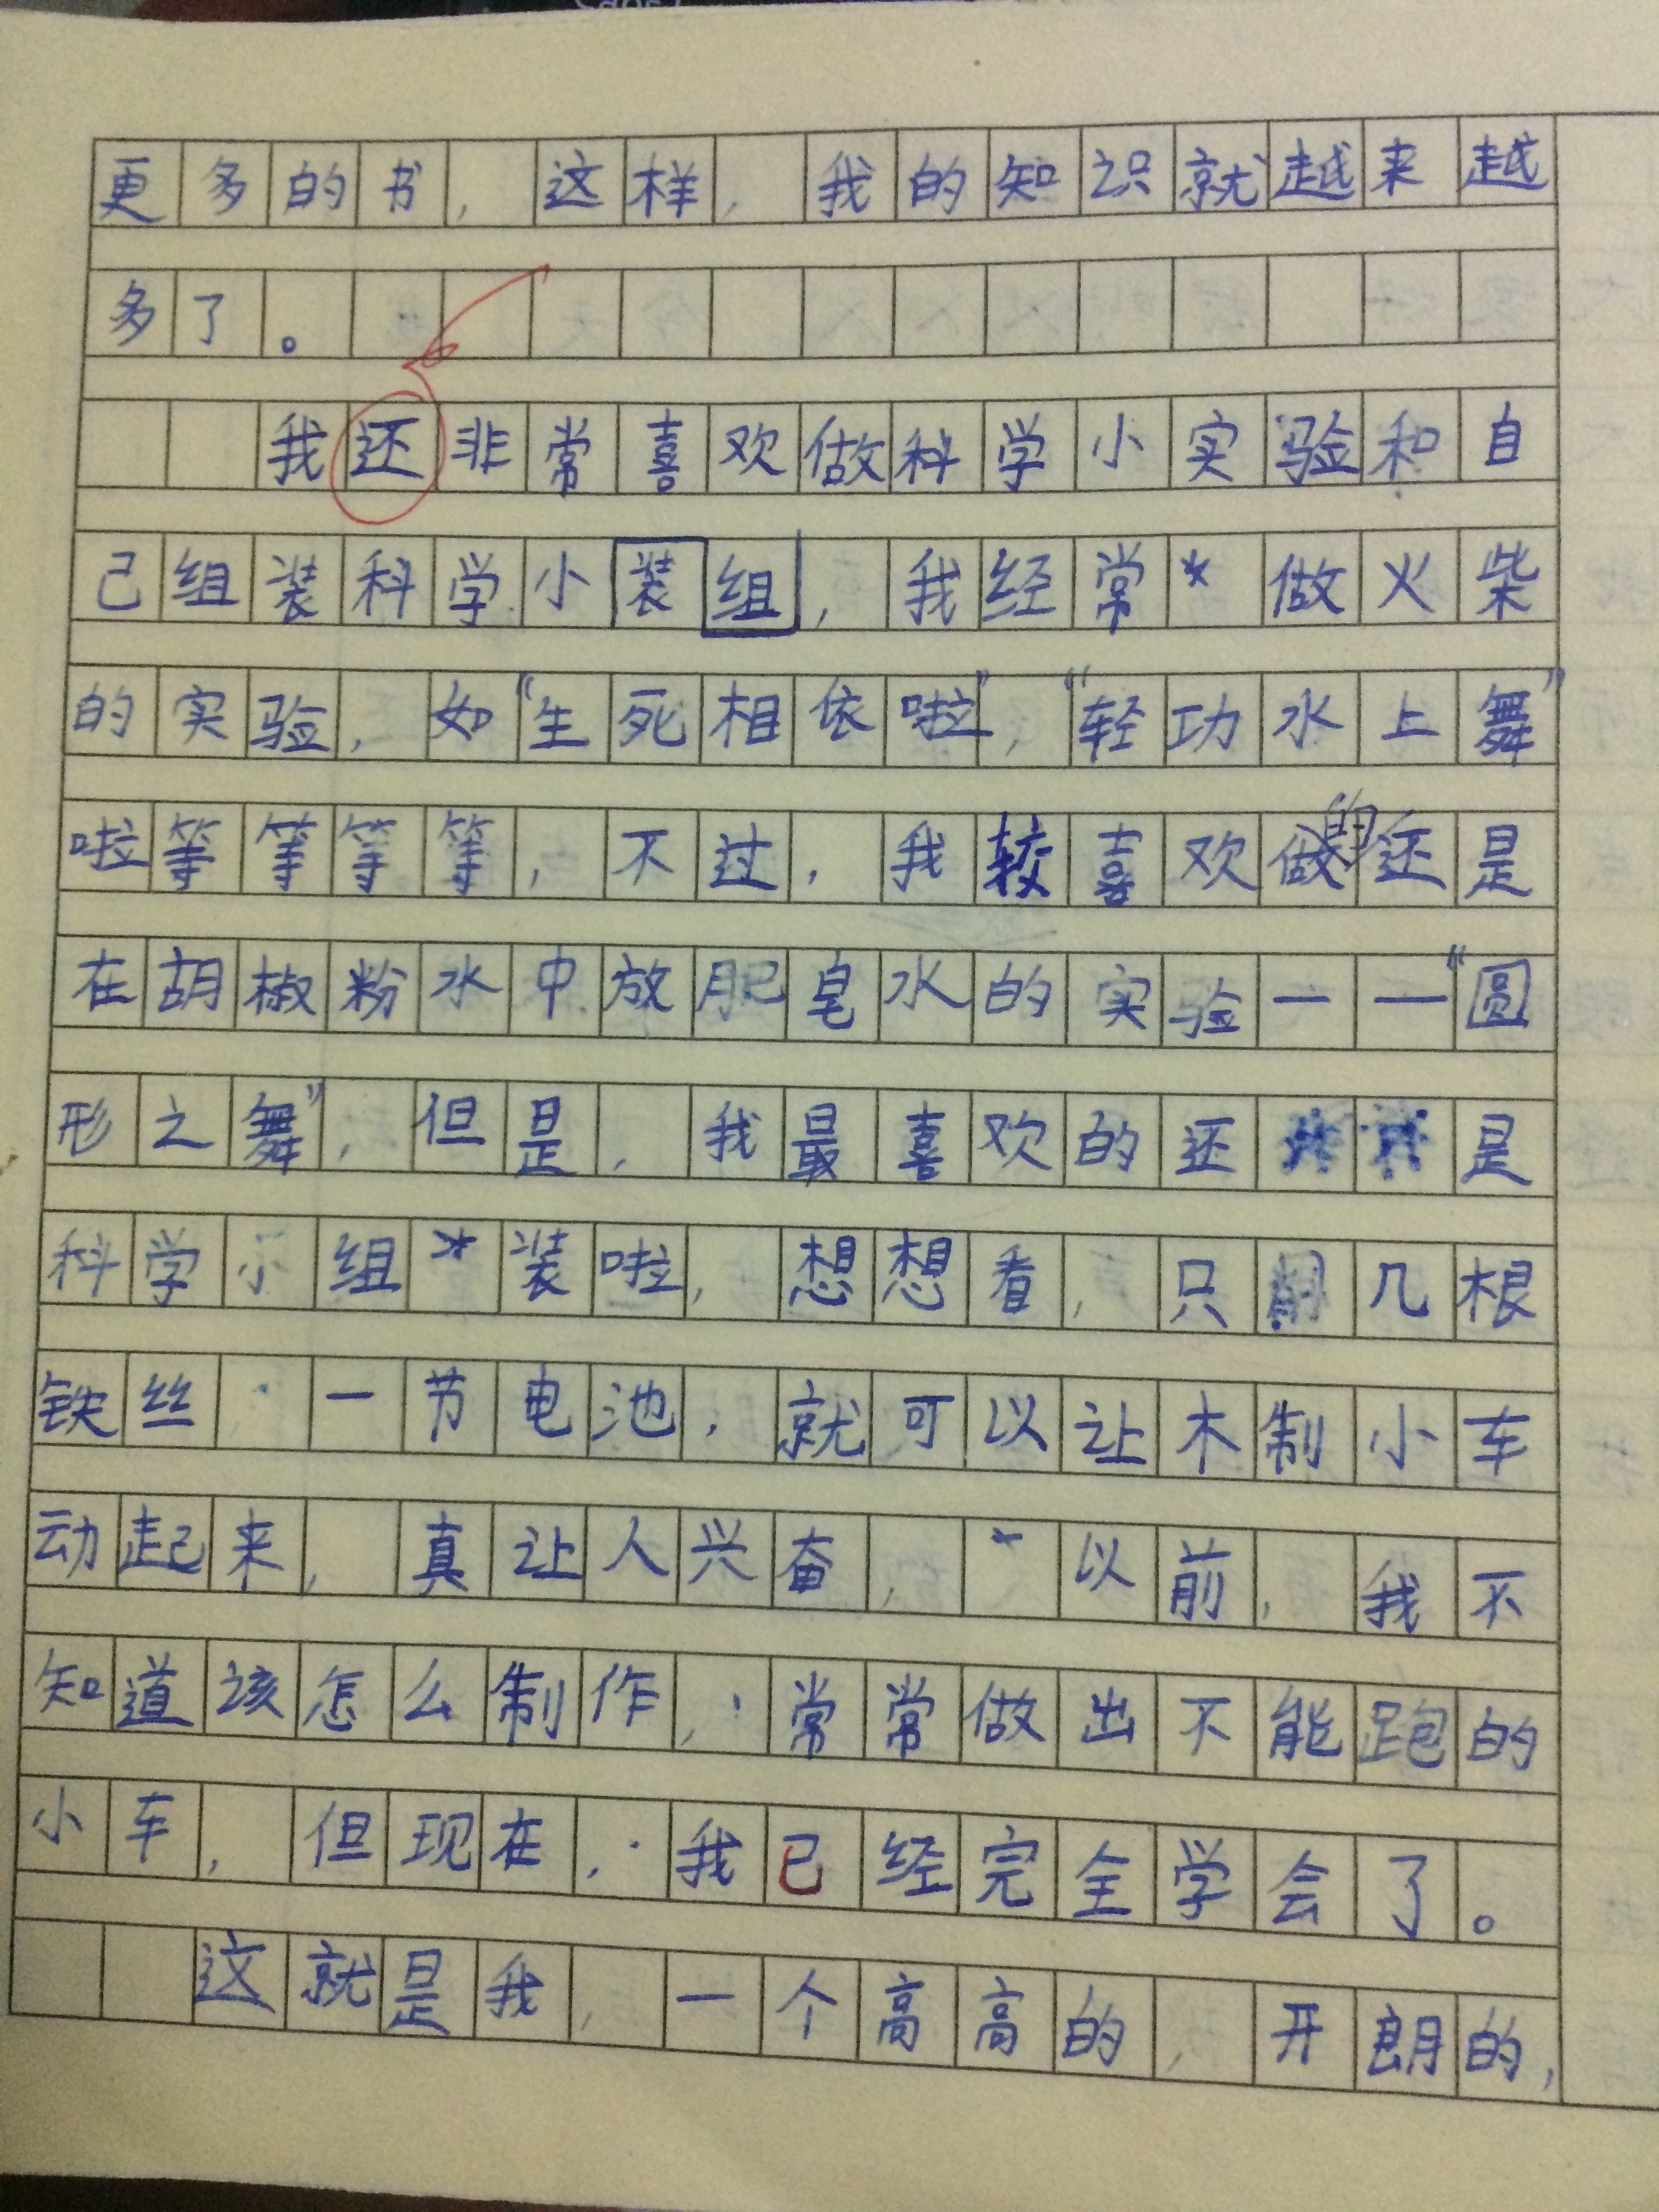 更多的书，这样，我的知识就越来越
多了。
我还非常喜欢做科学小实验和自
己组装科学小装组，我经常做火柴
的实验，如“生死相依啦”，“轻功水上舞”
啦等等等等，不过，我较喜欢做的还是
在胡椒粉水中放肥皂水的实验——“圆
形之舞”，但是，我最喜欢的还是
科学小组装啦，想想看，只用几根
铁丝一节电池，就可以让木制小车
动起来，真让人兴奋，以前，我不
知道该怎么制作，常常做出不能跑的
小车，但现在，我已经完全学会了。
这就是我，一个高高的，开朗的，